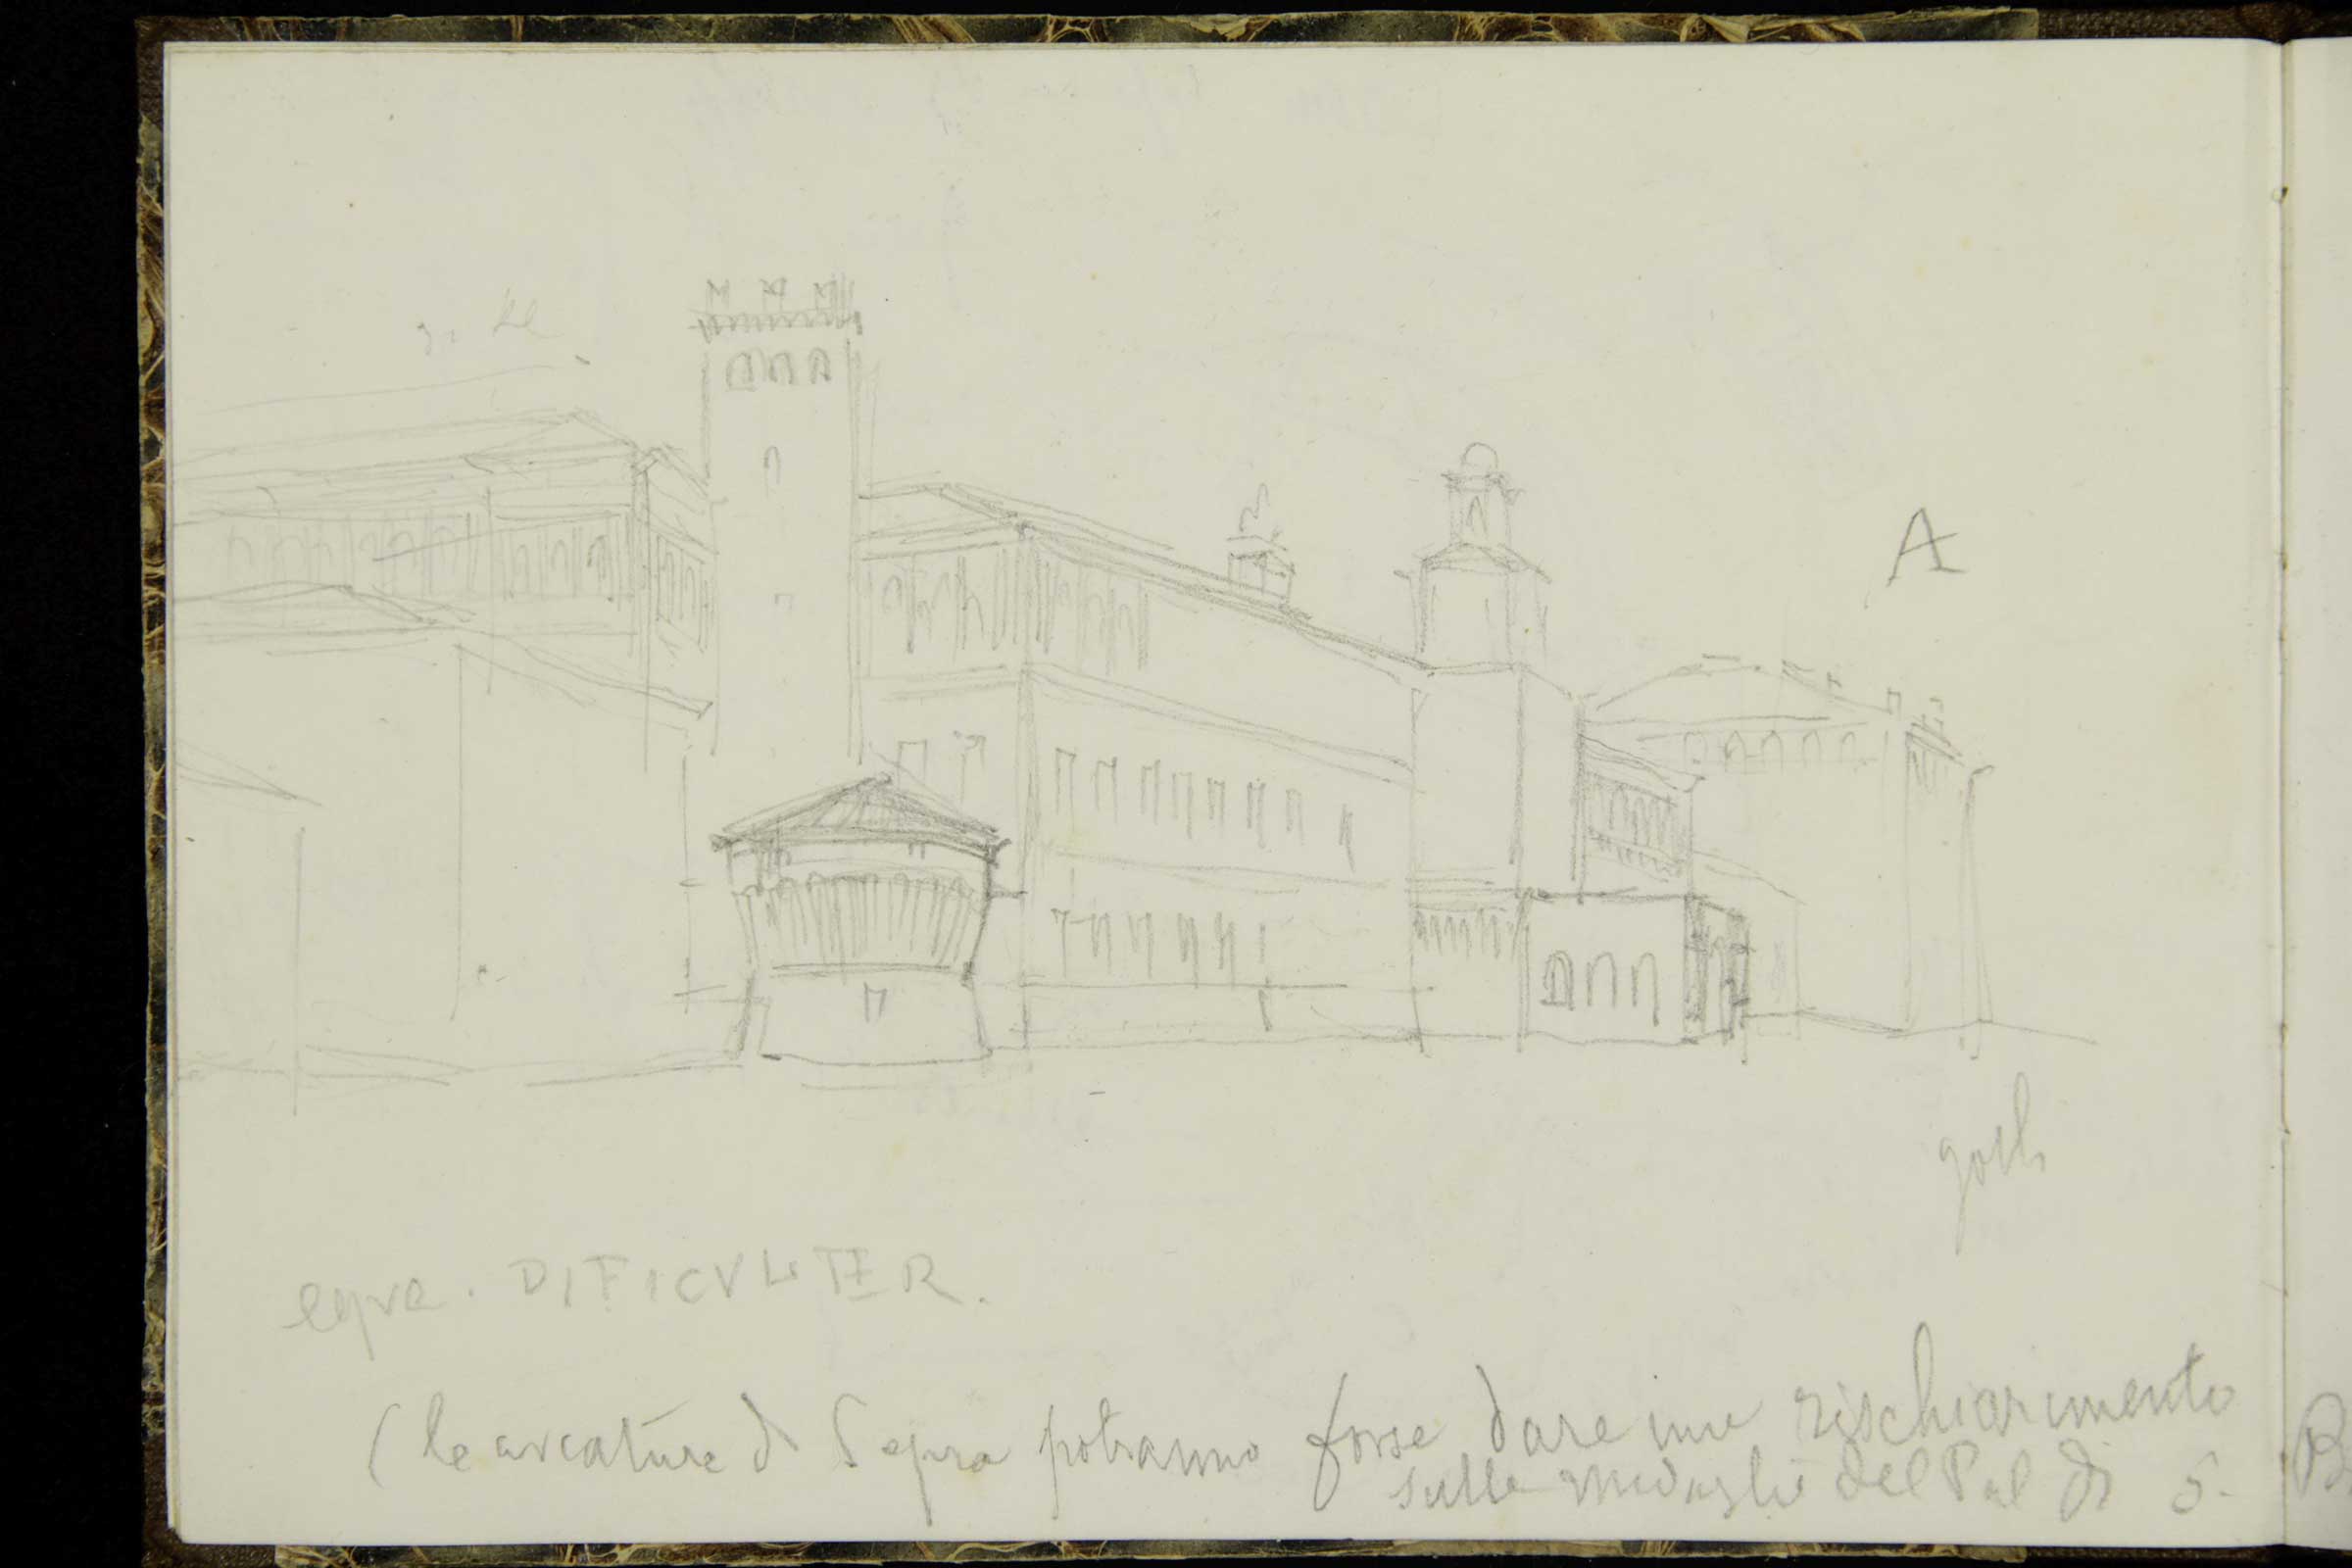 A
DIFICVLTER.
(le arcature di Sopra potranno forse dare un rischiarimento
sulle medaglie del Pal di S.
B